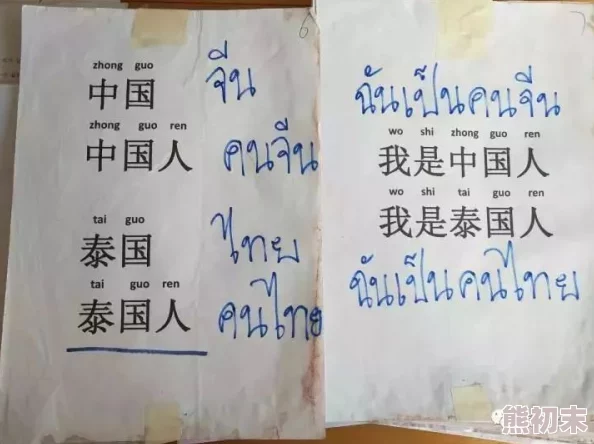 6
zhong guo
中国 จีน
zhong guo ren
中国人 คนจีน
tai guo
泰国 ไทย
tai guo ren
泰国人 คนไทย
7
ฉันเป็นคนจีน
wo shi zhong guo ren
我是中国人
wo shi tai guo ren
我是泰国人
ฉันเป็นคนไทย
熊初末